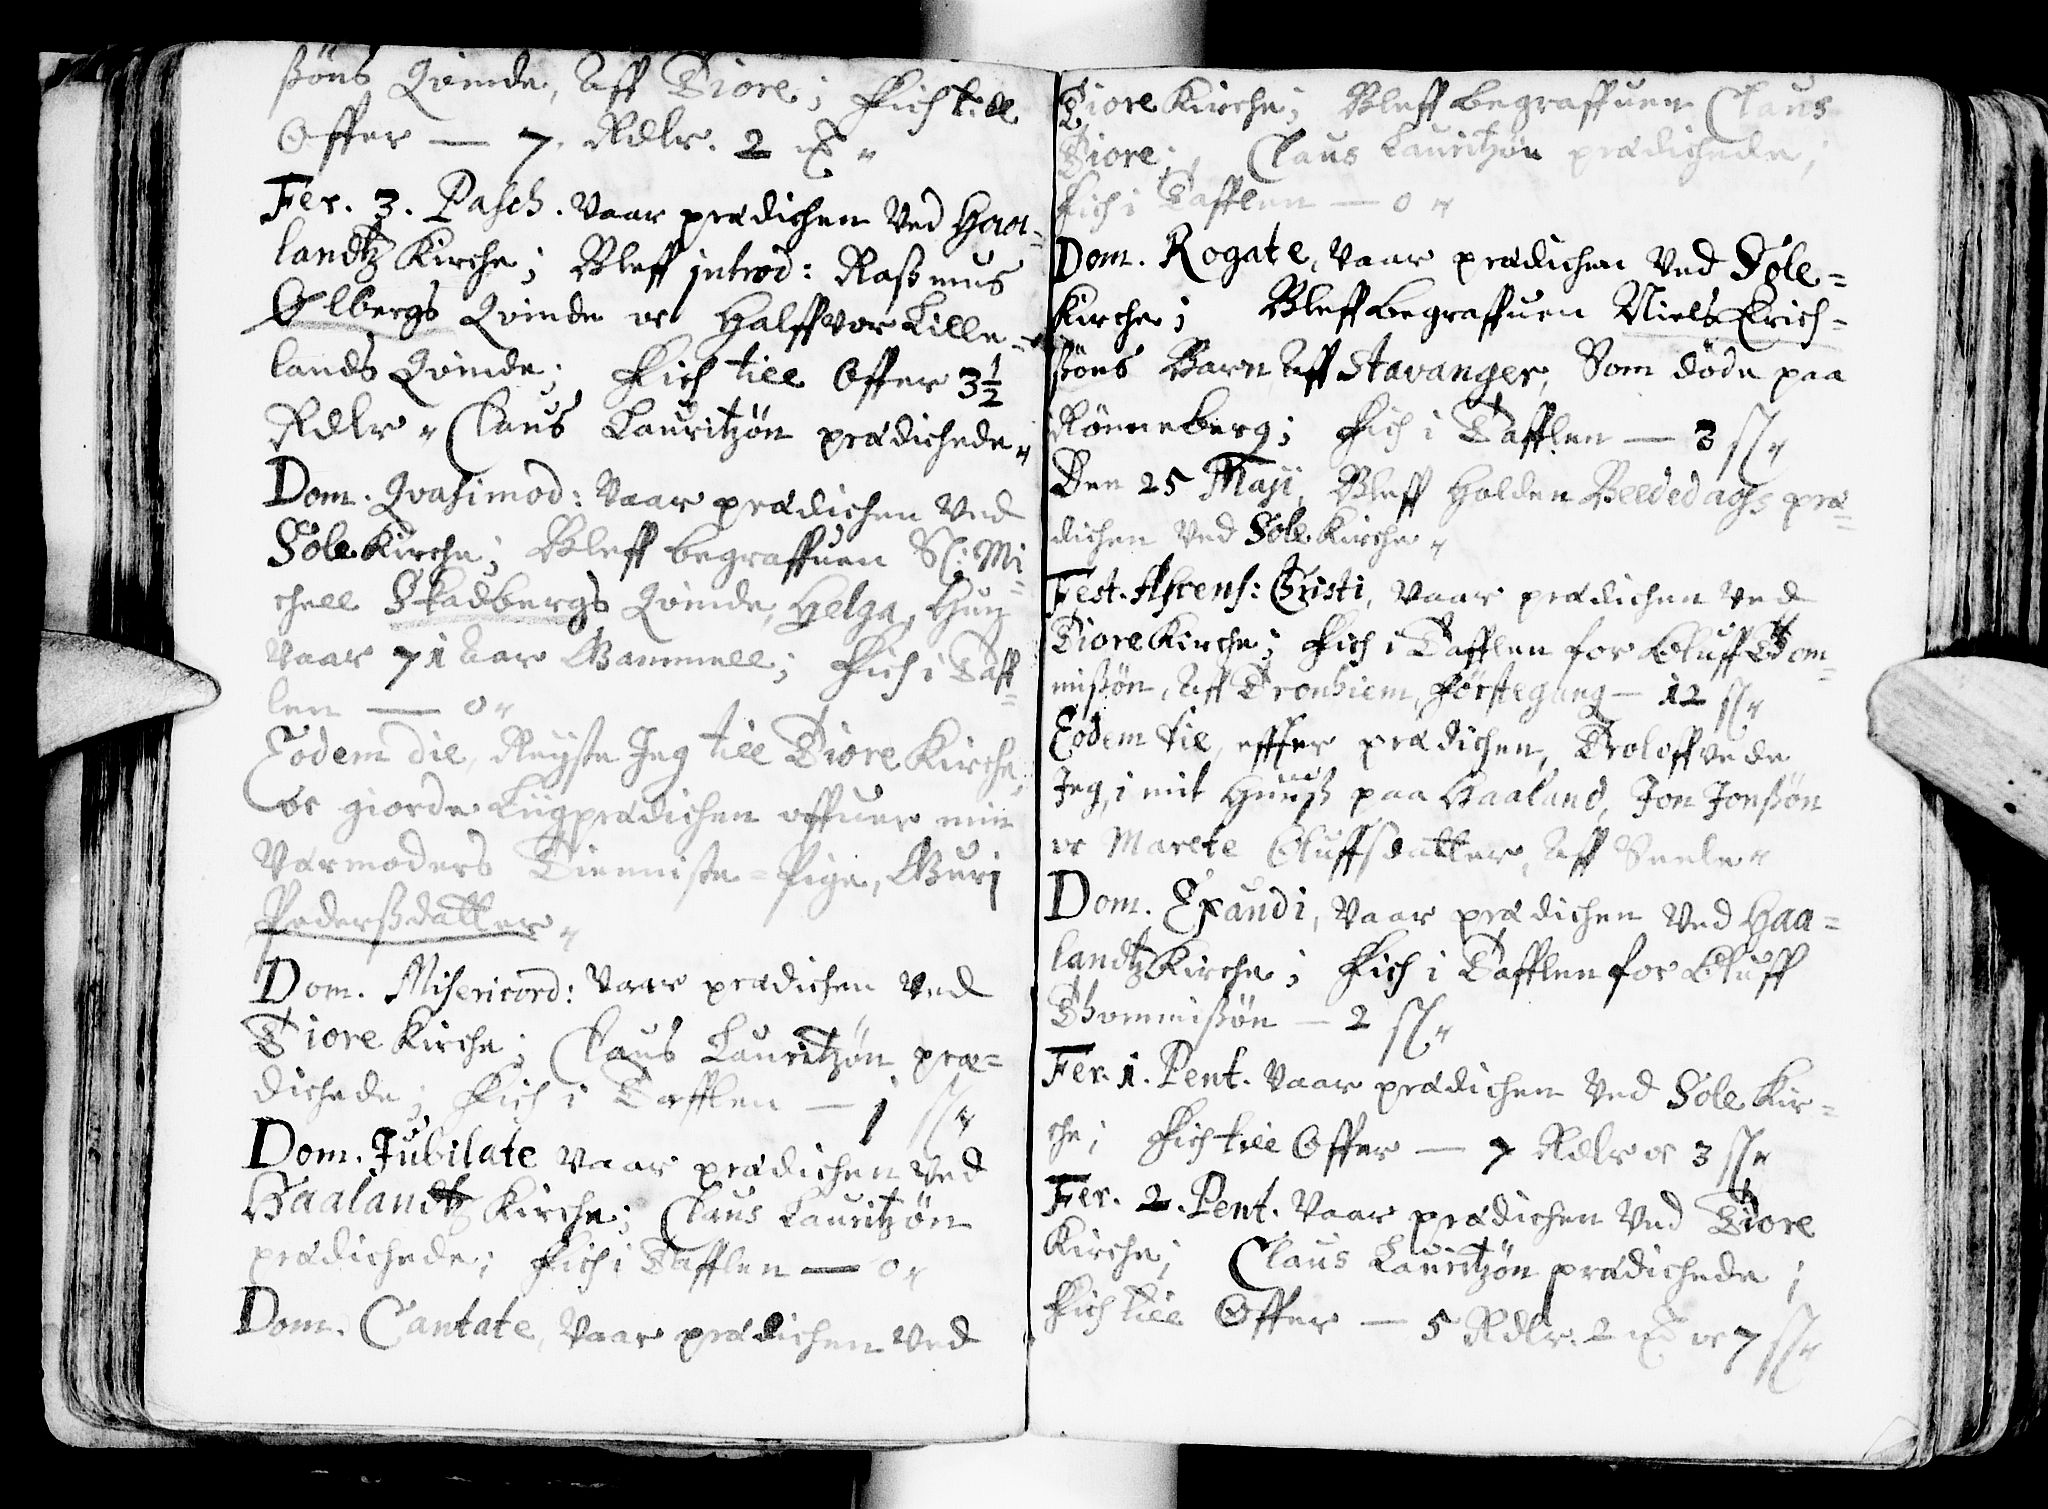 ßöns Qvinde, Aff Tiore; Fich till
Offer — 7. Rdlr. 2
Fer. 3. Pasch. Vaar prædichen Ved Haa-
landtz Kirche; Bleff introd: Raßmus
Ølbergs Qvinde oc Halffvor Lille-
lands Qvinde; Fich till Offer 3 1/2
Rdlr " Claus Lauritzön prædichede "
Dom. Qvasimod: Vaar prædichen Ved
Sole Kirche; Bleff begraffuen Sl: Mi-
chell Skadbergs Qvinde, Helga, Hun
Vaar 71 Aar Gammell; Fich i Taff-
len — 0 "
Eodem die, Reyste Jeg till Tiore Kirche,
oc giorde Liigprædichen offuer min
Værmoders Tienniste-Pige, Guri
Pederßdatter "
Dom. Misericord: Vaar prædichen Ved
Tiore Kirche; Claus Lauritzön præ-
dichede; Fich i Tafflen — j sl "
Dom. Jubilate Vaar prædichen Ved
Haalandtz Kirche; Claus Lauritzön
prædichede; Fich i Tafflen — 0 "
Dom. Cantate, Vaar prædichen Ved
Tiore Kirche; Bleff begraffuen Claus
Tiore; Claus Lauritzön prædichede;
Fich i Tafflen — 0 "
Dom. Rogate, Vaar prædichen Ved Sole-
Kirche; Bleff begraffuen Niels Erich-
ßöns Barn Aff Stavanger, Som döde paa
Rönneberg; Fich i Tafflen — 3 sl "
Den 25 Maji, Bleff Holden Beededags præ-
dichen Ved Sole Kirche "
Fest. Ascens: Christi, Vaar prædichen Ved
Tiore Kirche; Fich i Tafflen for Oluff Thom-
mißön, Aff Tronhiem, förstegang — 12 sl "
Eodem die, effter prædichen, Troloffvede
Jeg, i mit Huuß paa Haaland, Jon Jonßön
oc Marete Oluffsdatter, Aff Seele "
Dom. Exaudi, Vaar prædichen Ved Haa-
landtz Kirche; Fich i Tafflen for Oluff
Thommißön — 2 sl "
Fer. 1. Pent. Vaar prædichen Ved Sole Kir-
che; Fich till Offer — 7 Rdlr oc 3 sl "
Fer. 2. Pent. Vaar prædichen Ved Tiore
Kirche; Claus Lauritzön prædichede;
Fich till Offer — 5 Rdlr. 2 oc 7 sl "